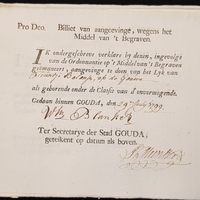 Pro Deo. Billiet van aangevinge, wegens het
Middel van 't Begraven.
IK ondergeschreve verklare by dezen, ingevolge
van de Ordonnantie op 't Middel van 't Begraven
geëmaneert, aangevinge te doen van het Lyk van
op de Gouwe
als gehorende onder de Classe van d'onvermogende.
Gedaan binnen GOUDA, den 29 July 1799.
Wm Blanken
Ter Secretarye der Stad GOUDA,
geteikent op datum als boven.